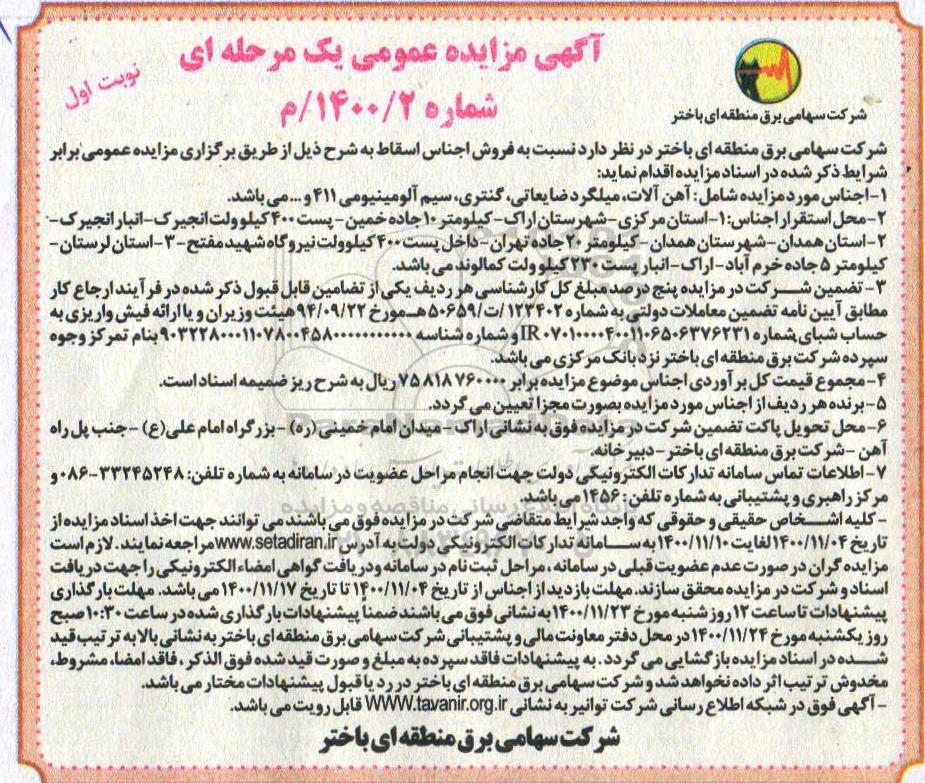 آگهی مزایده عمومی یک مرحله ای
نوبت اول
شماره ۱۴۰۰/۲/م
شرکت سهامی برق منطقه ای باختر
شرکت سهامی برق منطقه ای باختر در نظر دارد نسبت به فروش اجناس اسقاط به شرح ذیل از طریق برگزاری مزایده عمومی برابر
شرایط ذکر شده در اسناد مزایده اقدام نماید:
۱-اجناس مورد مزایده شامل: آهن آلات، میلگرد ضایعاتی، گنتری، سیم آلومینیومی ۴۱۱ و ...می باشد.
۲-محل استقرار اجناس: ۱-استان مرکزی-شهرستان اراک-کیلومتر ۱۰ جاده خمین-پست ۴۰۰ کیلوولت انجیرک-انبار انجیرک-
۲-استان همدان-شهرستان همدان-کیلومتر ۲۰ جاده تهران-داخل پست ۴۰۰ کیلوولت نیروگاه شهید مفتح-۳-استان لرستان-
کیلومتر ۵ جاده خرم آباد-اراک-انبار پست ۲۳۰ کیلو ولت کمالوند می باشد.
۳-تضمین شرکت در مزایده پنج درصد مبلغ کل کارشناسی هر ردیف یکی از تضامین قابل قبول ذکر شده در فرآیند ارجاع کار
مطابق آیین نامه تضمین معاملات دولتی به شماره ۱۲۳۴۰۲/ت/۵۰۶۵۹هـ مورخ ۹۴/۰۹/۲۲ هیئت وزیران و یا ارائه فیش واریزی به
حساب شبای شماره IR۰۷۰۱۰۰۰۰۴۰۰۱۱۰۶۵۰۶۳۷۶۲۳۱ و شماره شناسه ۹۰۳۲۲۸۰۰۰۱۱۰۷۸۰۰۴۵۸۰۰۰۰۰۰۰۰۰۰۰۰ بنام تمرکز وجوه
سپرده شرکت برق منطقه ای باختر نزد بانک مرکزی می باشد.
۴-مجموع قیمت کل برآوردی اجناس موضوع مزایده برابر ۷۵۸۱۸۷۶۰۰۰۰ ریال به شرح ریز ضمیمه اسناد است.
۵-برنده هر ردیف از اجناس مورد مزایده بصورت مجزا تعیین می گردد.
۶-محل تحویل پاکت تضمین شرکت در مزایده فوق به نشانی اراک-میدان امام خمینی (ره) -بزرگراه امام علی(ع) -جنب پل راه
آهن -شرکت برق منطقه ای باختر-دبیرخانه.
۷-اطلاعات تماس سامانه تدارکات الکترونیکی دولت جهت انجام مراحل عضویت در سامانه به شماره تلفن: ۳۳۲۴۵۲۴۸-۰۸۶ و
مرکز راهبری و پشتیبانی به شماره تلفن: ۱۴۵۶ می باشد.
-کلیه اشخاص حقیقی و حقوقی که واجد شرایط متقاضی شرکت در مزایده فوق می باشند می توانند جهت اخذ اسناد مزایده از
تاریخ ۱۴۰۰/۱۱/۰۴ لغایت ۱۴۰۰/۱۱/۱۰ به سامانه تدارکات الکترونیکی دولت به آدرس www.setadiran.ir مراجعه نمایند. لازم است
مزایده گران در صورت عدم عضویت قبلی در سامانه، مراحل ثبت نام در سامانه ودریافت گواهی امضاء الکترونیکی را جهت دریافت
اسناد و شرکت در مزایده محقق سازند. مهلت بازدید از اجناس از تاریخ ۱۴۰۰/۱۱/۰۴ تا تاریخ ۱۴۰۰/۱۱/۱۷ می باشد. مهلت بارگذاری
پیشنهادات تا ساعت ۱۲ روز شنبه مورخ ۱۴۰۰/۱۱/۲۳ به نشانی فوق می باشند ضمنا پیشنهادات بارگذاری شده در ساعت ۱۰:۳۰ صبح
روز یکشنبه مورخ ۱۴۰۰/۱۱/۲۴ در محل دفتر معاونت مالی و پشتیبانی شرکت سهامی برق منطقه ای باختر به نشانی بالا به ترتیب قید
شده در اسناد مزایده بازگشایی می گردد. به پیشنهادات فاقد سپرده به مبلغ و صورت قید شده فوق الذکر ، فاقد امضا، مشروط،
مخدوش ترتیب اثر داده نخواهد شد و شرکت سهامی برق منطقه ای باختر در رد یا قبول پیشنهادات مختار می باشد.
-آگهی فوق در شبکه اطلاع رسانی شرکت توانیر به نشانی WWW.tavanir.org.ir قابل رویت می باشد.
شرکت سهامی برق منطقه ای باختر